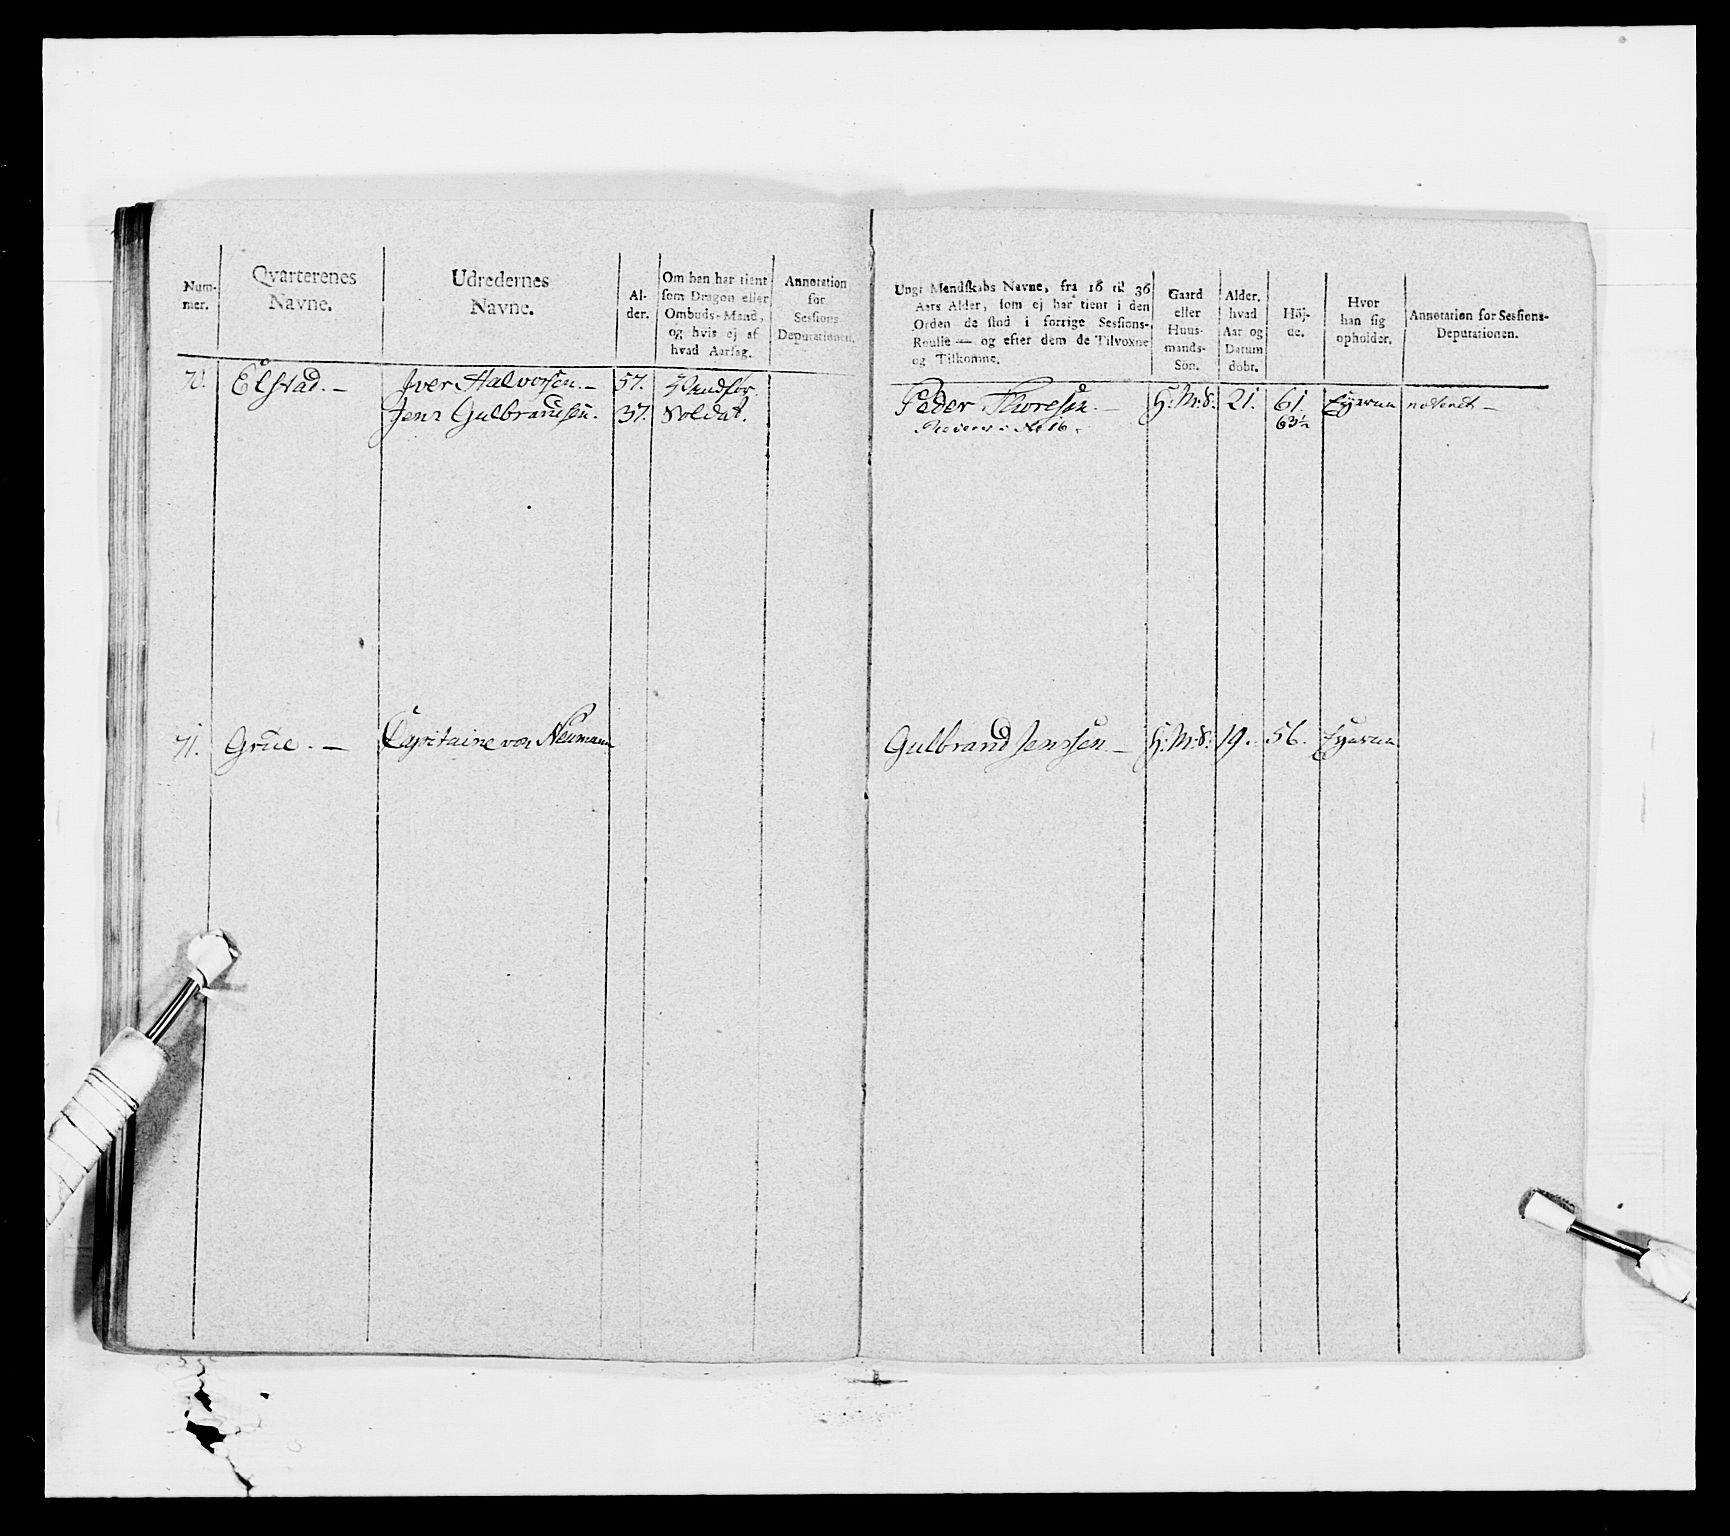 Num-
mer.
Qvarterenes
Navne.
Udredernes
Navne.
Al-
der.
Om han har tient
som Dragon eller
Ombuds-Mand,
og hvis ej af
hvad Aarsag.
Annotation
for
Sessions
Deputationen.
70. Elstad. — Iver Halvorsen. — 57.
Jens Gulbrandsen. 37. Soldat.
71. Grüe. — Capitaine von Neumann
Ungt Mandskabs Navne, fra 16 til 36
Aars Alder, som ej har tient i den
Orden de stod i forrige Sessions-
Roulle — og efter dem de Tilvoxne
og Tilkomne.
Gaard
eller
Huus-
mands-
Søn.
Alder.
hvad
Aar og
Datum
døbt.
Höj-
de.
Hvor
han sig
opholder.
Annotation for Sessions-
Deputationen.
Peder Thoresen. — H.M.S. 21. 61. noteret —
63½
Gulbrand Jenssen — H.M.S. 19. 56.